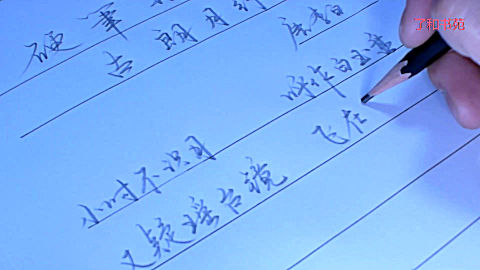 硬笔
古朗月行
唐 李白
小时不识月 呼作白玉盘
又疑瑶台镜 飞在
子和书苑